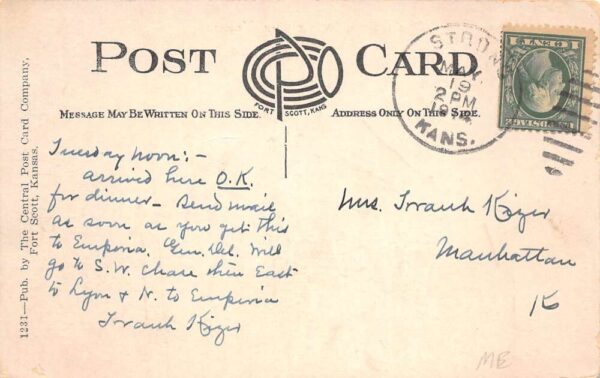 POST CARD
FORT SCOTT, KANS.
MESSAGE MAY BE WRITTEN ON THIS SIDE.
ADDRESS ONLY ON THIS SIDE.
STRONG
MAY
19
2 PM
KANS.
1231—Pub. by The Central Post Card Company,
Fort Scott, Kansas.
Tuesday noon:-
arrived here O.K.
for dinner - Send mail
as soon as you get this
to Emporia. Gen. Del. Will
go to S.W. Chase then East
to Lyon & N. to Emporia
Frank Kizer
Mrs. Frank Kizer
Manhattan
K
ME